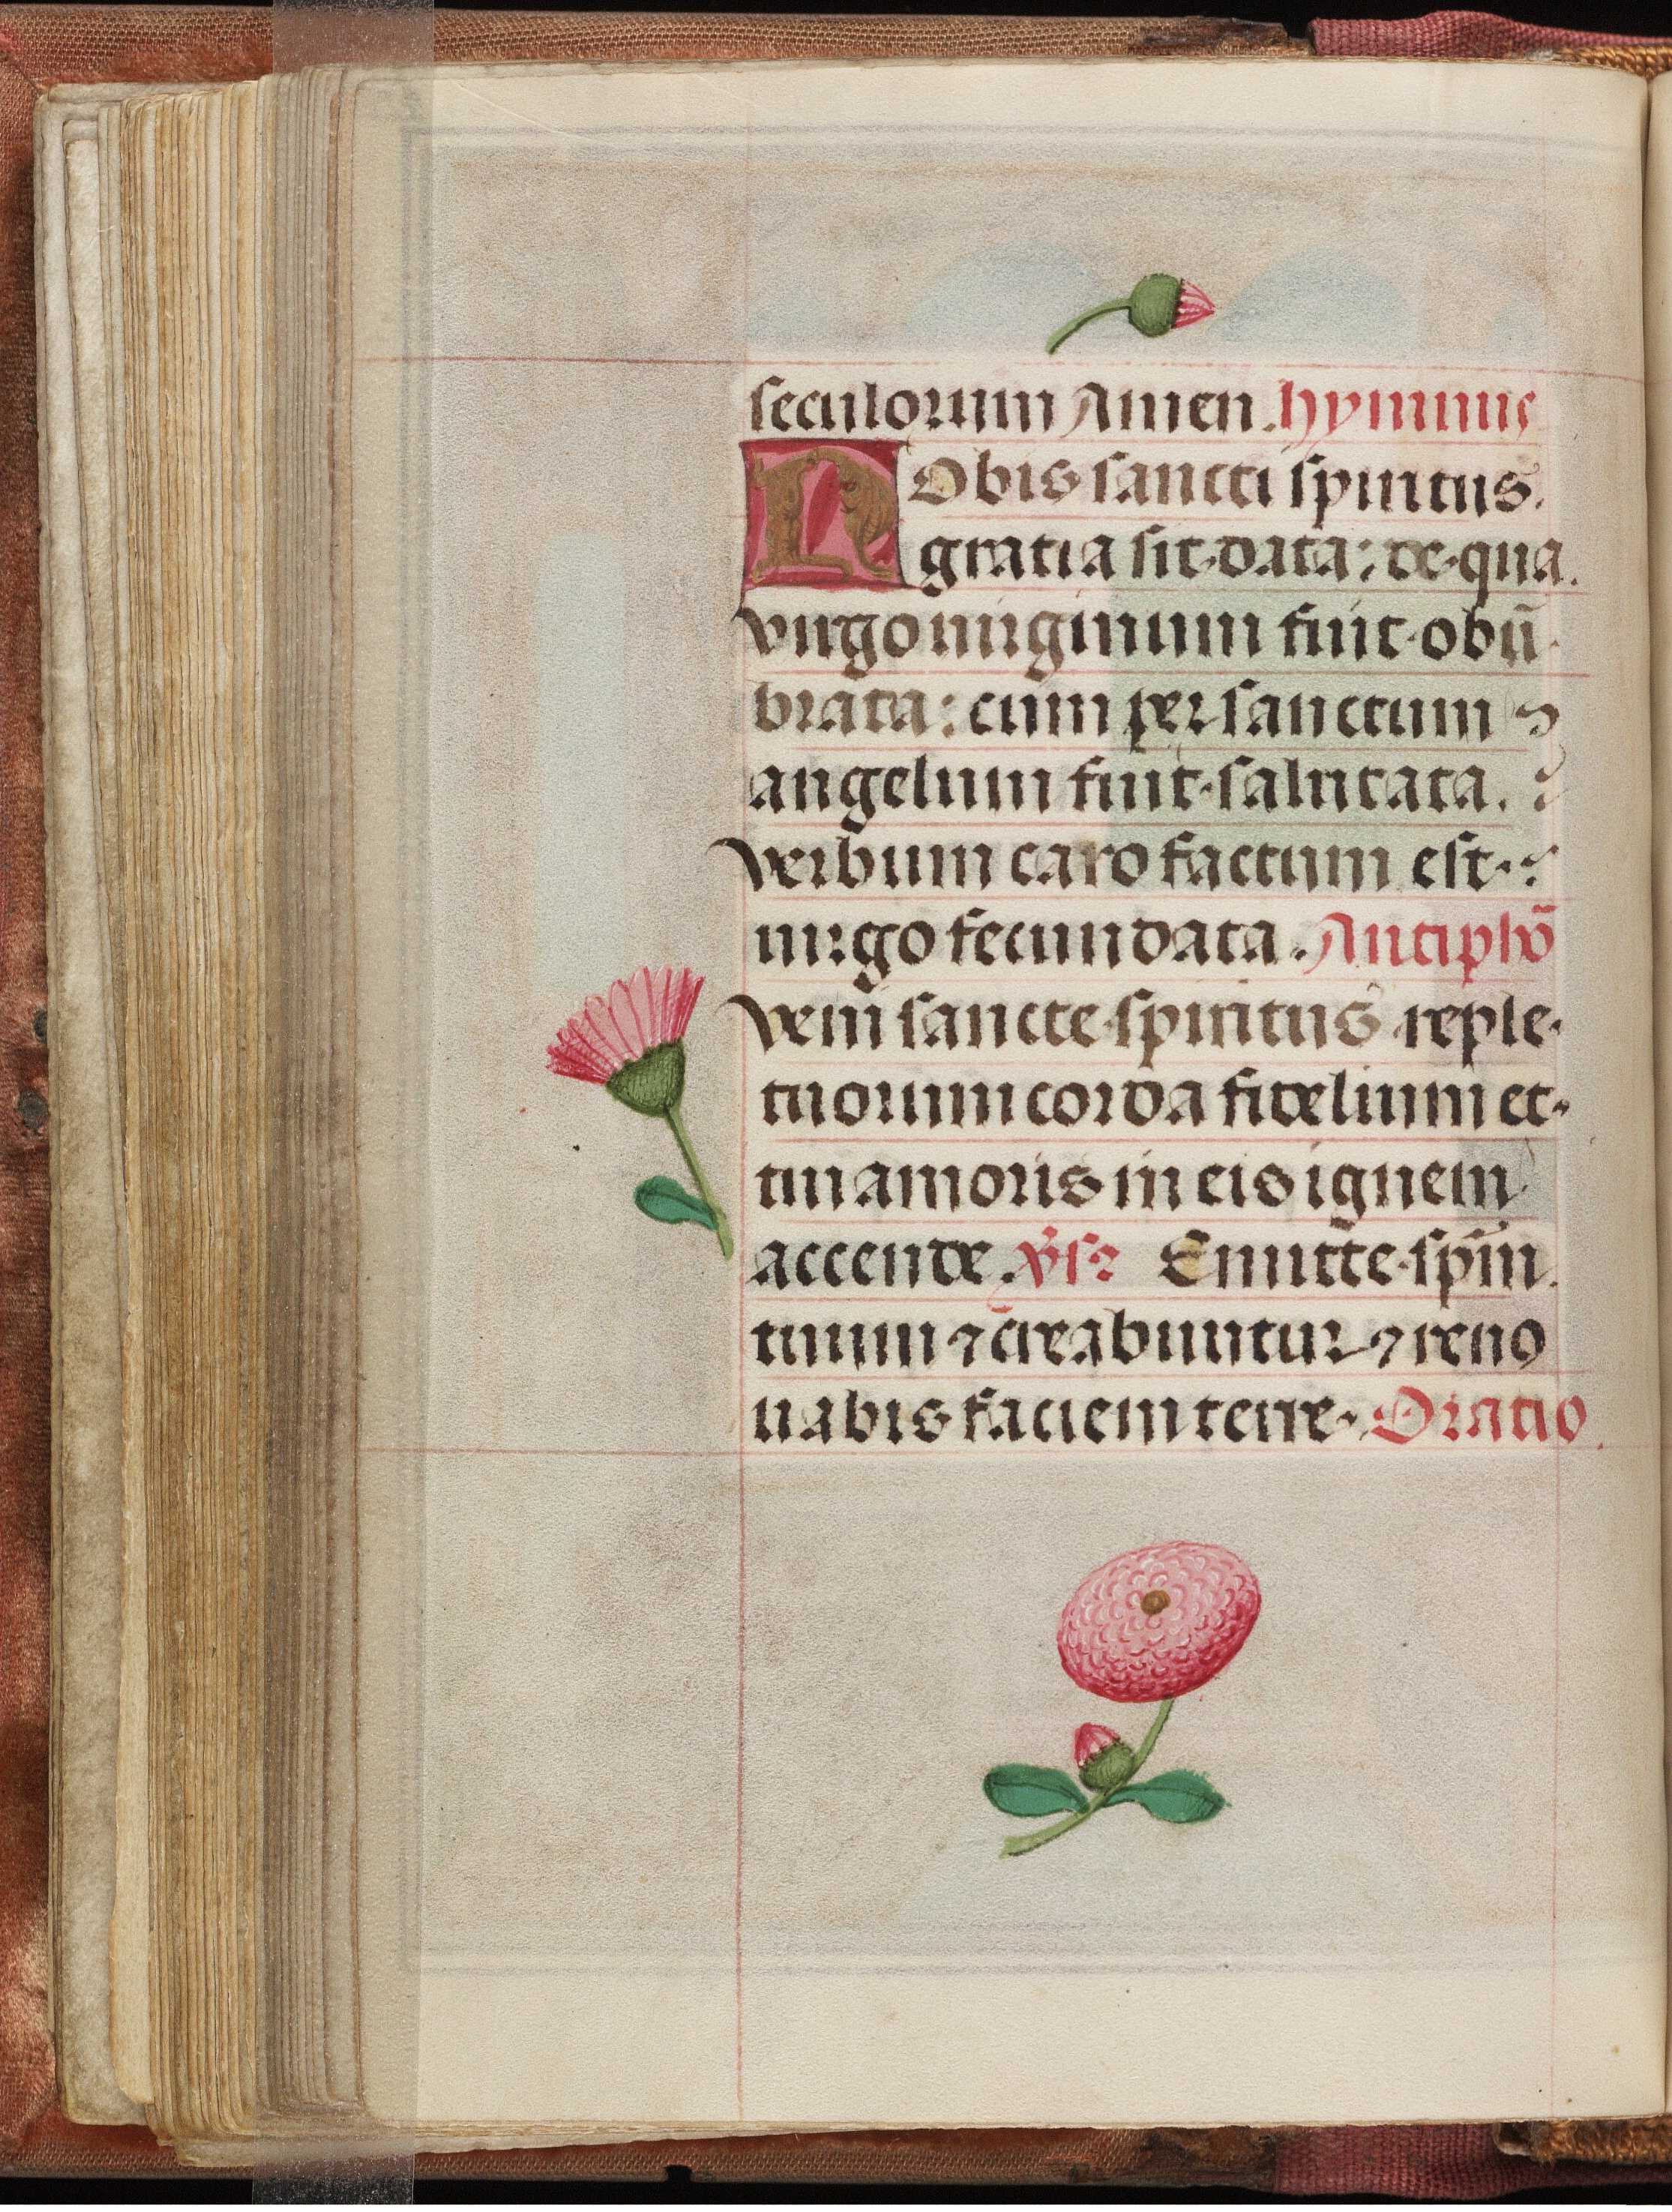 seculorum Amen. hymnus
Nobis sancti spiritus.
gratia sit data: de qua.
virgo uirginum fuit obū
brata: cum per sanctum
angelum fuit salutata.
verbum caro factum est.
uirgo fecundata. Antiphō
veni sancte spiritus reple
tuorum corda fidelium et
tui amoris in eis ignem
accende. v̄sꝛ Emitte sp̄m
tuum ⁊ creabuntur ⁊ reno
uabis faciem terre. Oratio.